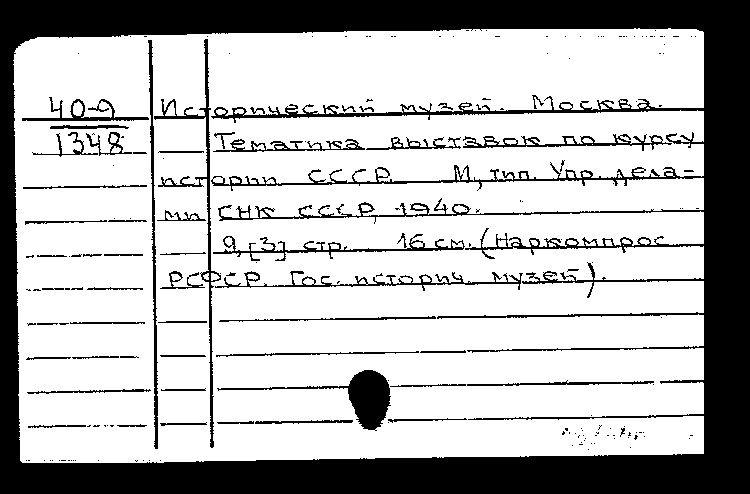 40-9
1348
Исторический музей. Москва.
Тематика выставок по курсу
истории СССР. М, тип. Упр. дела=
ми СНК СССР, 1940.
9, [3] стр. 16 см. (Наркомпрос
РСФСР. Гос. историч. музей).